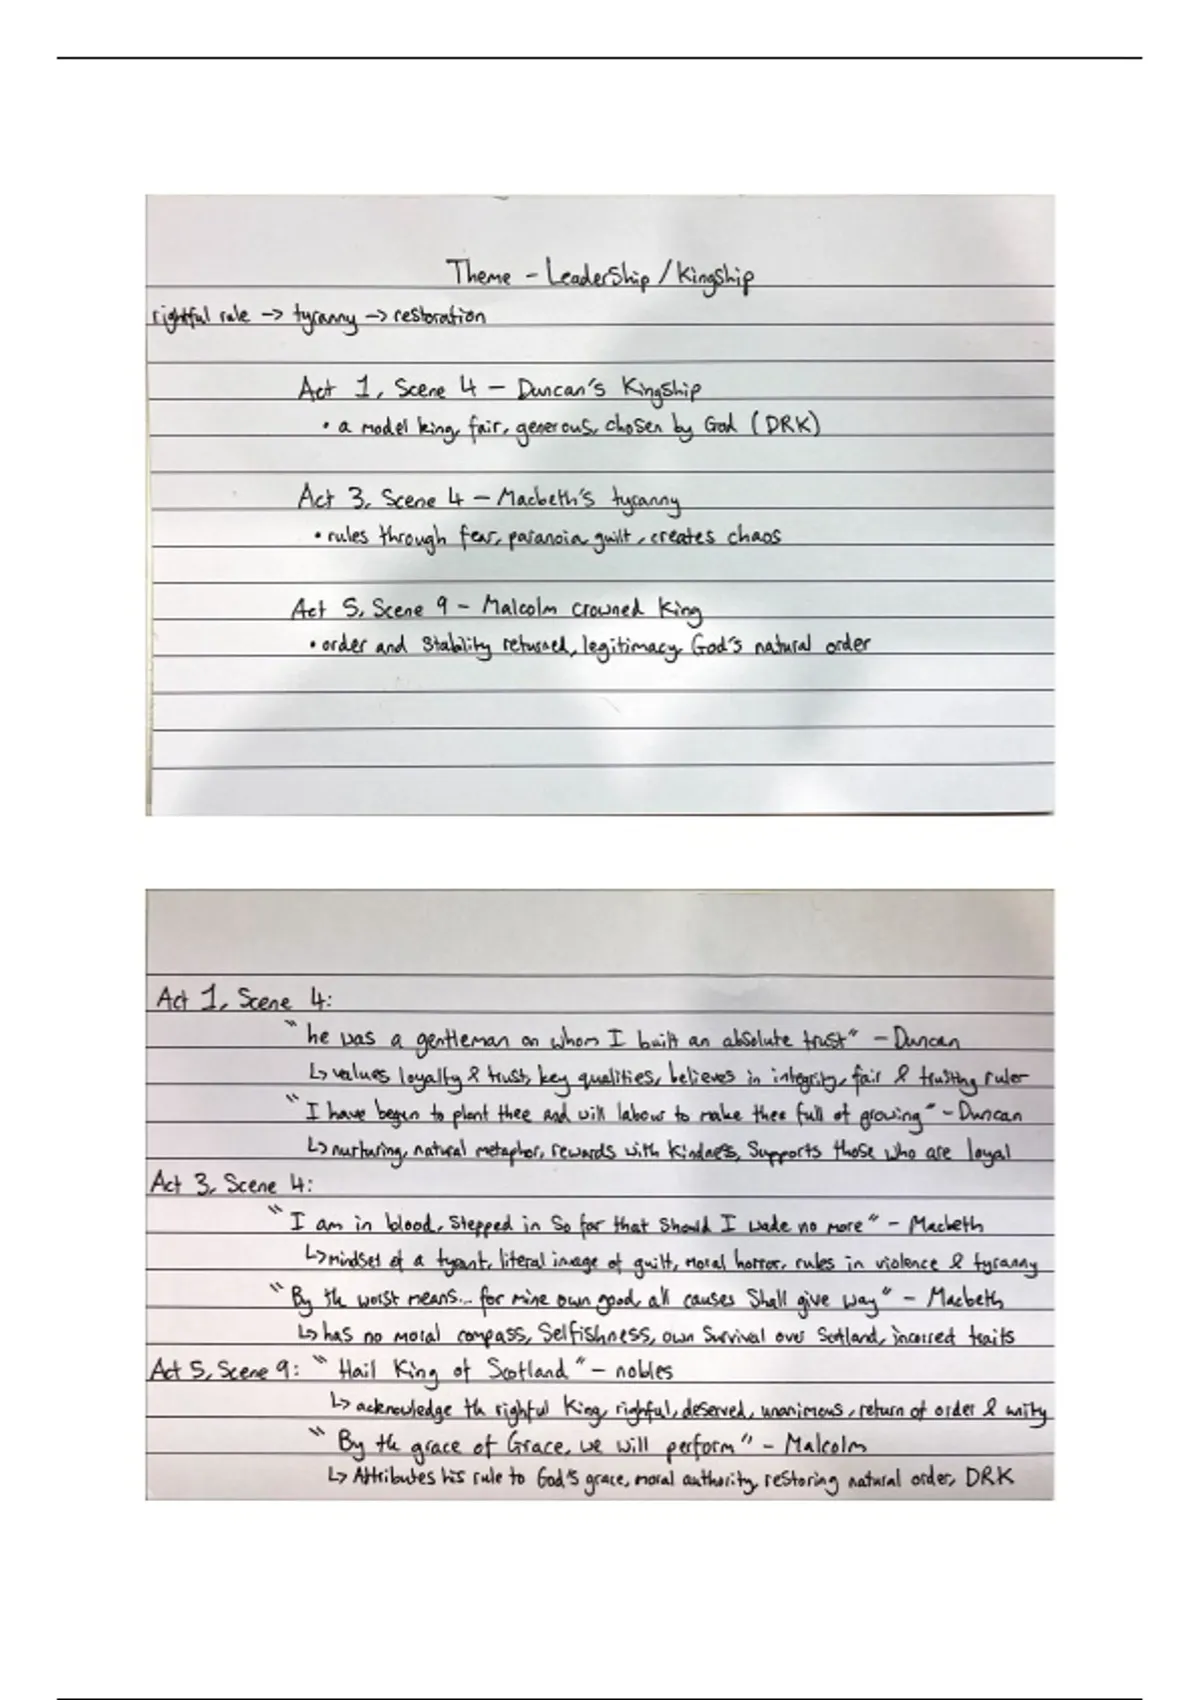 Theme - Leadership / Kingship
rightful rule -> tyranny -> restoration
Act 1, Scene 4 - Duncan's Kingship
• a model king, fair, generous, chosen by God (DRK)
Act 3, Scene 4 - Macbeth's tyranny
• rules through fear, paranoia, guilt, creates chaos
Act 5, Scene 9 - Malcolm crowned King
• order and stability returned, legitimacy, God's natural order
Act 1, Scene 4:
"he was a gentleman on whom I built an absolute trust" - Duncan
↳ values loyalty & trust, key qualities, believes in integrity, fair & trusting ruler
"I have begun to plant thee and will labour to make thee full of growing" - Duncan
↳ nurturing, natural metaphor, rewards with kindness, supports those who are loyal
Act 3, Scene 4:
"I am in blood, stepped in so far that should I wade no more" - Macbeth
↳ mindset of a tyrant, literal image of guilt, moral horror, rules in violence & tyranny
"By the worst means... for mine own good, all causes shall give way" - Macbeth
↳ has no moral compass, selfishness, own survival over Scotland, incorrect traits
Act 5, Scene 9: "Hail King of Scotland" - nobles
↳ acknowledge the rightful King, rightful, deserved, unanimous, return of order & unity
"By the grace of Grace, we will perform" - Malcolm
↳ Attributes his rule to God's grace, moral authority, restoring natural order, DRK